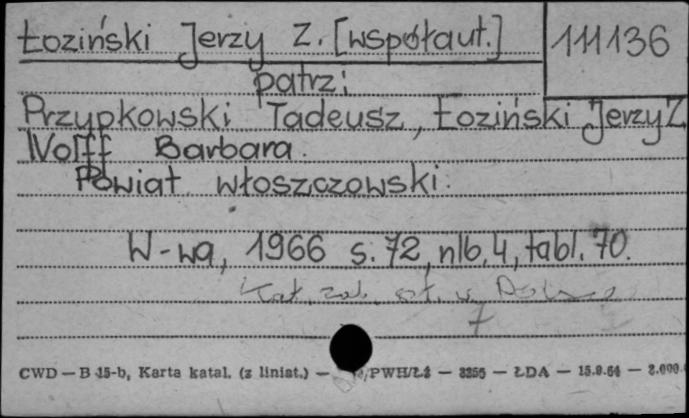 Łoziński Jerzy Z. [współaut.] 111136
patrz:
Przypkowski Tadeusz, Łoziński Jerzy Z.
Wolff Barbara.
Powiat włoszczowski.
W-wa, 1966 s. 72, nlb. 4, tabl. 70.
Kat. zab. szt. w Polsce
7
CWD — B 15-b, Karta katal. (z liniat.) — /PWH/Łż — 3255 — ŁDA — 15.9.64 — 2.000.